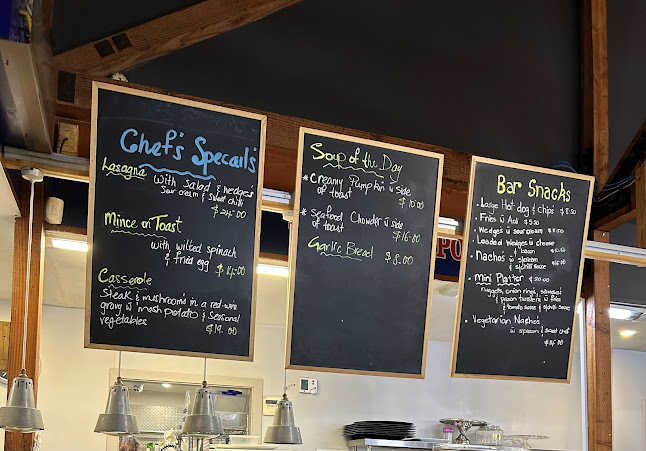 Chef's Specails'
Lasagna
with Salad & wedges
sour cream & sweet chilli
Mince on Toast
with wilted spinach
& fried egg
Casserole
Steak & mushrooms in a red-wine
gravy w mash potato & Seasonal
vegetables
$19.00
Soup of the Day
* Creamy Pumpkin w side
of toast
* Seafood Chowder w side
of toast $16.00
Garlic Bread $8.00
Bar Snacks
• Large Hot dog & chips
• Fries w Aioli
• Wedges w sour cream
• Loaded Wedges w cheese
& bacon
• Nacho's w
• Mini Platter $20.00
nuggets, onion rings,
& prawn twisters w fries
& tomato sauce &
• Vegetarian Nachos
w
PO